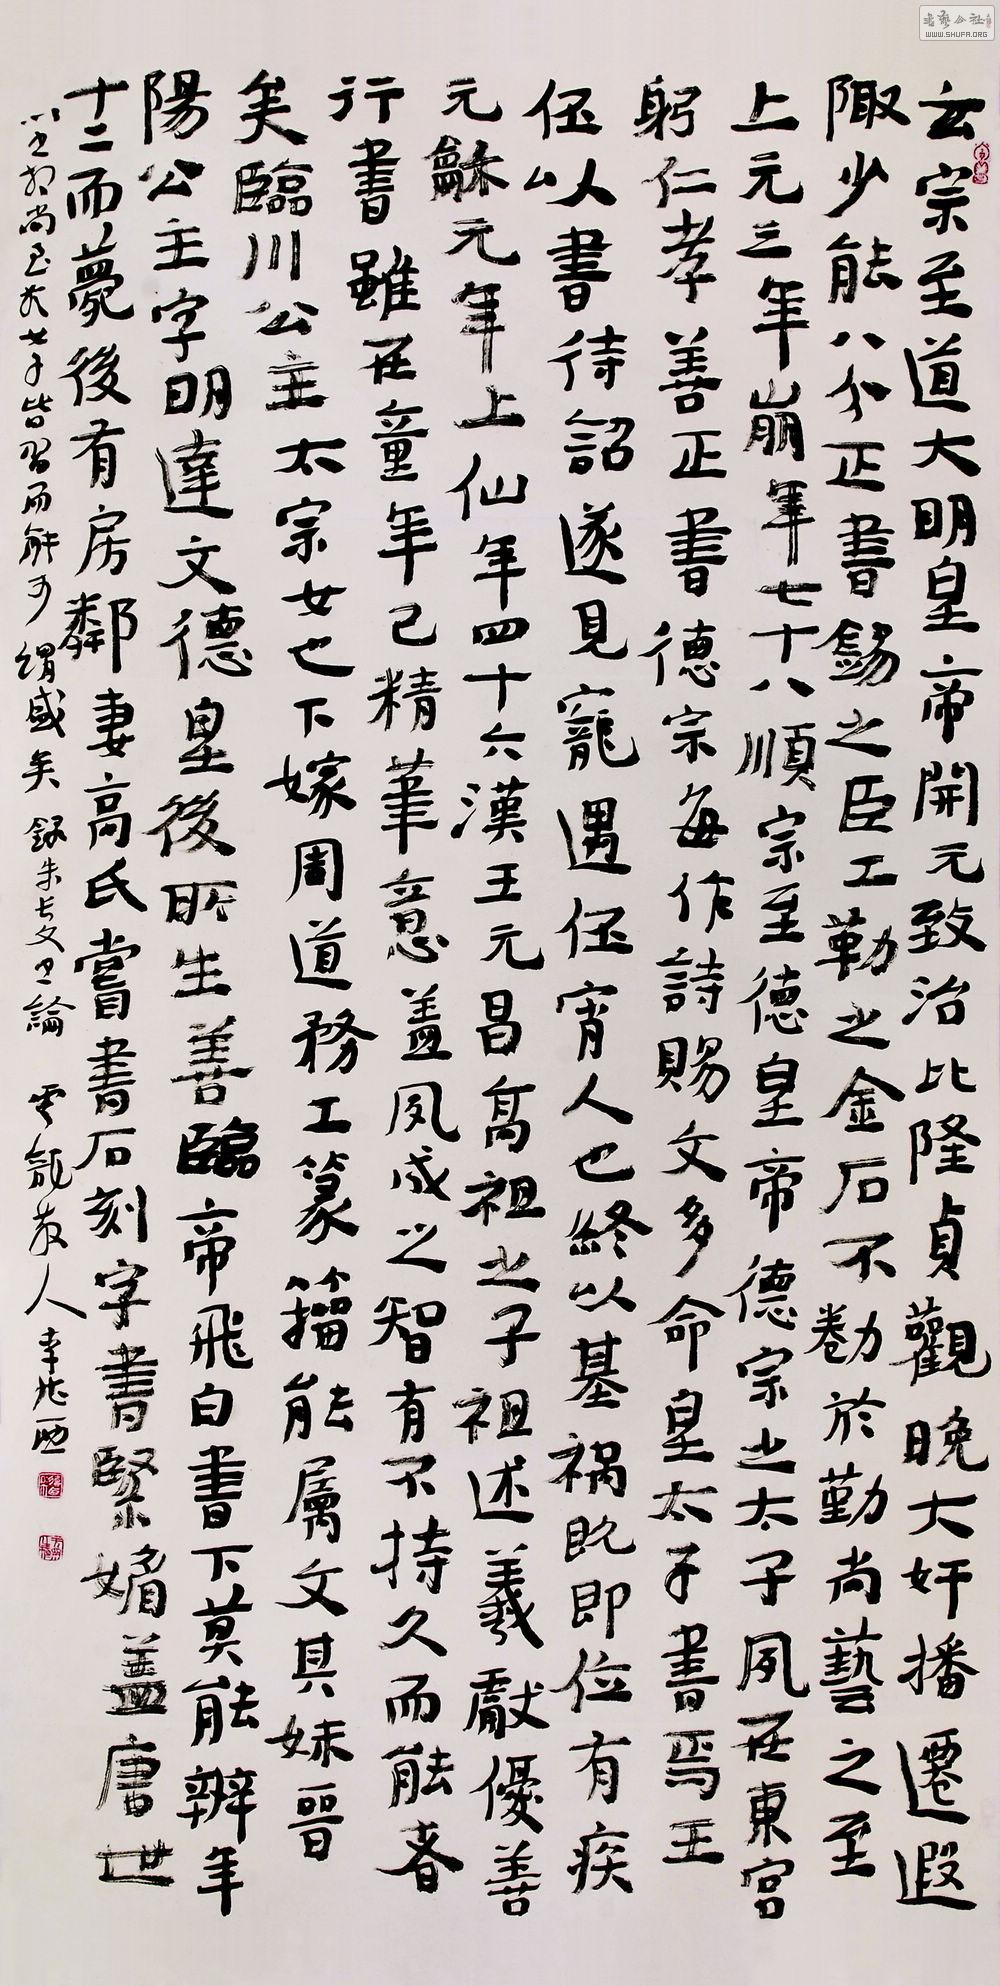 玄宗至道大明皇帝開元致治比隆貞觀晚大奸播遷遐
陬少能八分正書錫之臣工勒之金石不勌於勤尚藝之至
上元三年崩年七十八順宗至德皇帝德宗之太子夙在東宮
躬仁孝善正書德宗每作詩賜文多命皇太子書焉王
伾以書待詔遂見寵遇伾宵人也終以基禍既即位有疾
元龢元年上仙年四十六漢王元昌高祖之子祖述羲獻優善
行書雖在童年已精筆意蓋夙成之智有不持久而能者
矣臨川公主太宗女也下嫁周道務工篆籀能屬文其妹晉
陽公主字明達文德皇後所生善臨帝飛白書下莫能辨年
十二而薨後有房鄰妻高氏嘗書石刻字書緊媚蓋唐世
以書相尚至於女子皆習而能可謂盛矣 錄朱長文書論 散人 李兆西
書藝公社
WWW.SHUFA.ORG